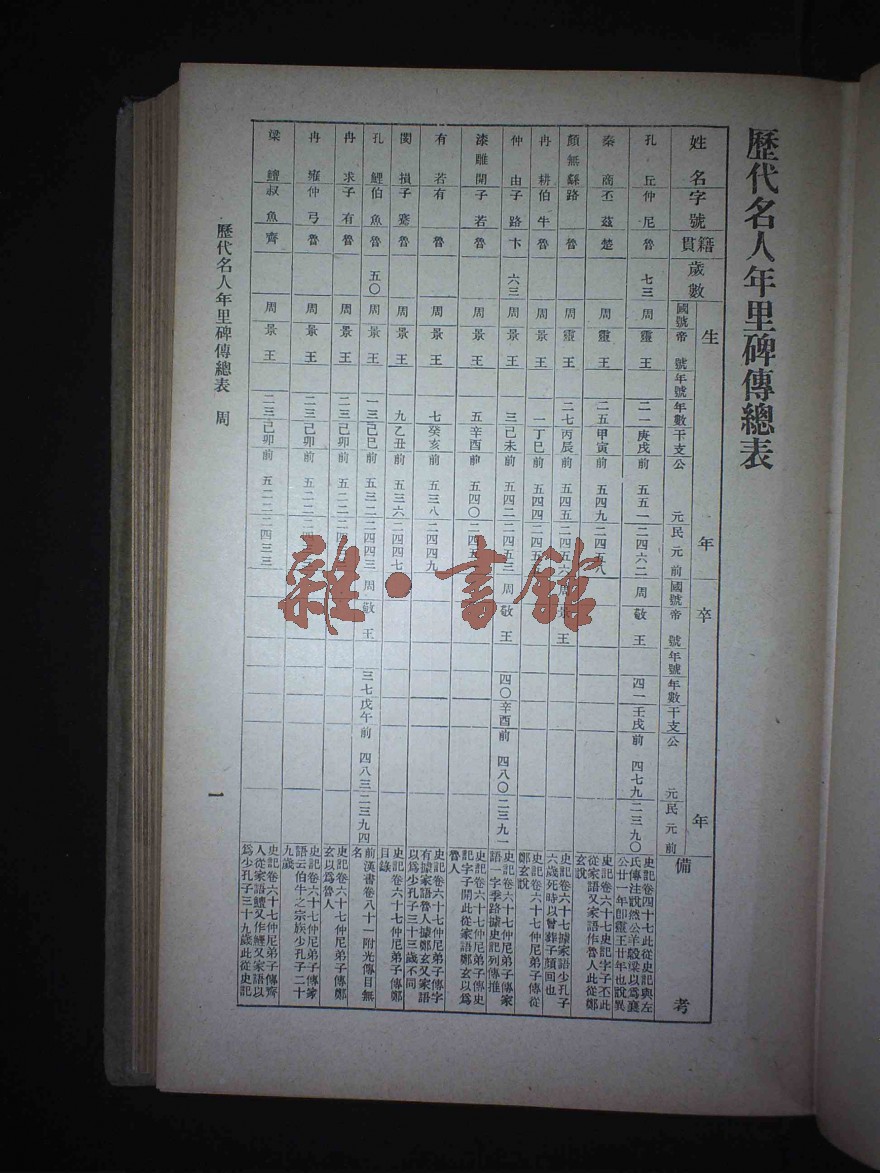 歷代名人年里碑傳總表
姓名 字號 籍貫 歲數 生年 國號 帝號 年號 年數 干支 公元 民元前 卒年 國號 帝號 年號 年數 干支 公元 民元前 備考
孔丘 仲尼 魯 七三 周 靈王 二一 庚戌 前五五一 二四六二 周 敬王 四一 壬戌 前四七九 二三九〇 史記卷四十七此從史記與左氏傳注說然公羊穀梁以為襄公廿一年卽靈王廿年也說異
秦商 丕茲 楚 周 靈王 二五 甲寅 前五四九 二四 八 史記卷六十七史記字子丕此從家語又家語作魯人此從鄭玄說
顏無繇 路 魯 周 靈王 二七 丙辰 前五四五 二四五六 周 景王 史記卷六十七據家語少孔子六歲死時以曾葬子顏回也
冉耕 伯牛 魯 周 景王 一 丁巳 前五四四 二四五 史記卷六十七仲尼弟子傳從鄭玄說
仲由 子路 卞 六三 周 景王 三 己未 前五四二 二四五三 周 敬王 四〇 辛酉 前四八〇 二三九一 史記卷六十七仲尼弟子傳家語一字季路據史記列傳推
漆雕開 子若 魯 周 景王 五 辛酉 前五四〇 二四五 史記卷六十七仲尼弟子傳史記字子開此從家語鄭玄以為魯人
有若 有 魯 周 景王 七 癸亥 前五三八 二四四九 史記卷六十七仲尼弟子傳字有據家語魯人據鄭玄又家語以為少孔子三十三歲不同
閔損 子騫 魯 周 景王 九 乙丑 前五三六 二四四七 史記卷六十七仲尼弟子傳鄭目錄
孔鯉 伯魚 魯 五〇 周 景王 一三 己巳 前五三二 二四四三 周 敬王 三七 戊午 前四八三 二三九四 前漢書卷八十一附光傳目無名
冉求 子有 魯 周 景王 二三 己卯 前五二二 二四 史記卷六十七仲尼弟子傳鄭玄以為魯人
冉雍 仲弓 魯 周 景王 二三 己卯 前五二二 二四 史記卷六十七仲尼弟子傳家語云伯牛之宗族少孔子二十九歲
梁鱣 叔魚 齊 周 景王 二三 己卯 前五二二 二四三三 史記卷六十七仲尼弟子傳齊人從家語鱣又作鯉又家語以為少孔子三十九歲此從史記
歷代名人年里碑傳總表 周
一
雜·書館